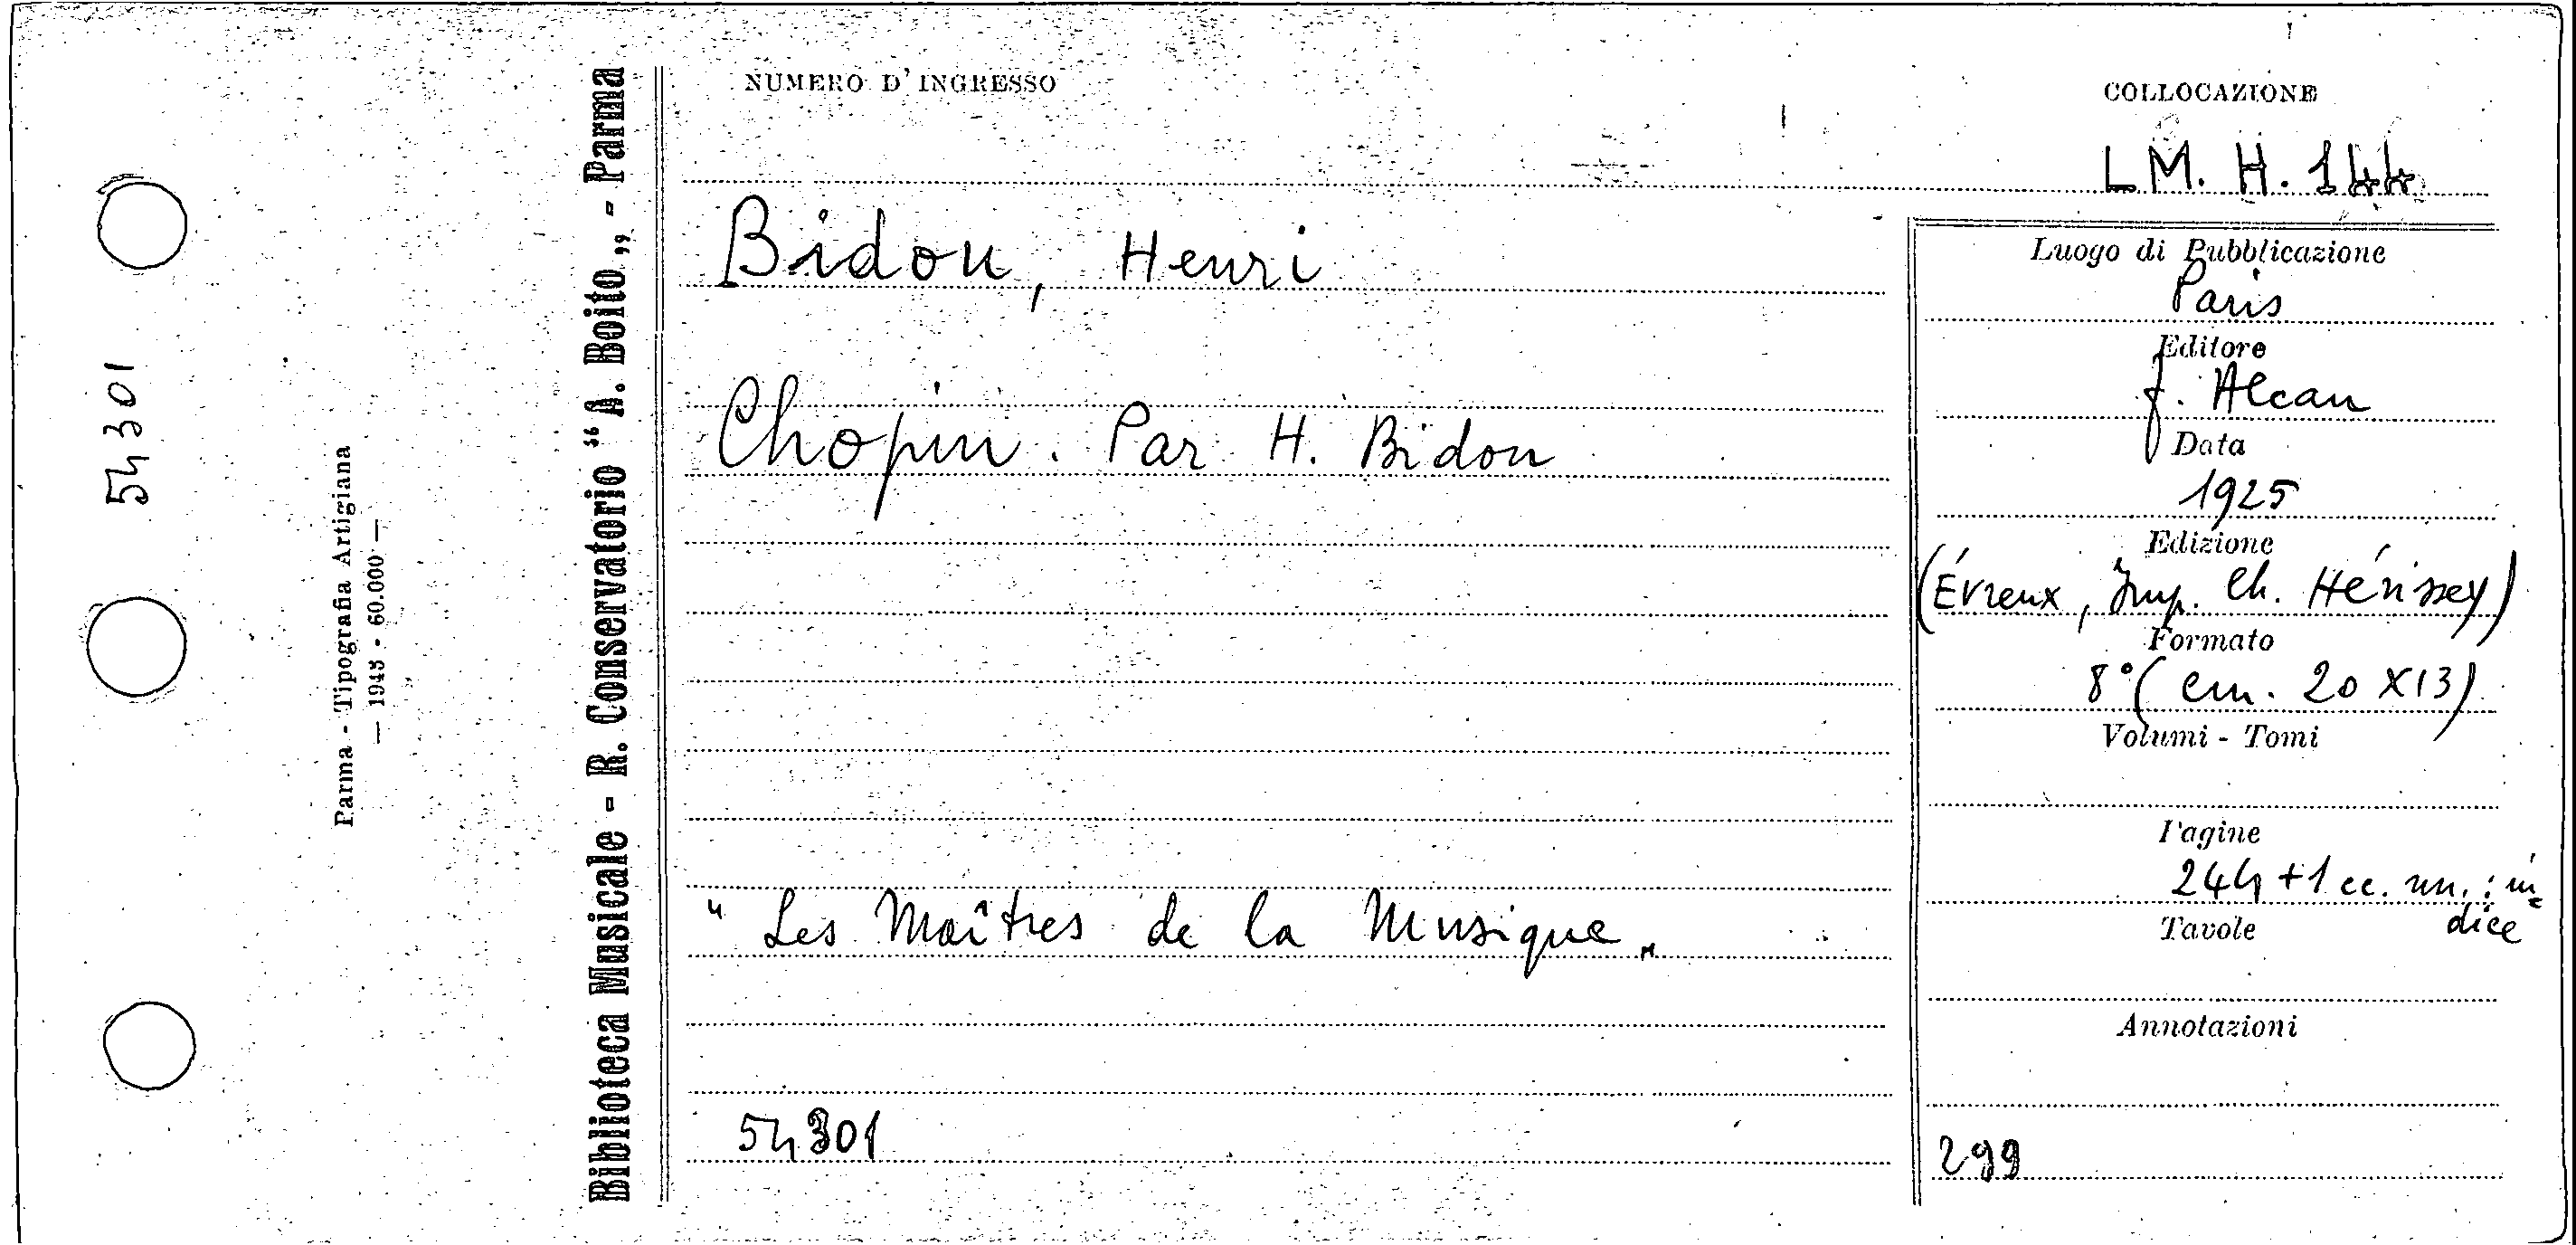 NUMERO D'INGRESSO
COLLOCAZIONE
LM. H. 144
Bidou, Henri
Chopin. Par H. Bidou
"Les Maîtres de la Musique„
54301
Luogo di Pubblicazione
Paris
Editore
f. Alcan
Data
1925
Edizione
(Évreux, Imp. Ch. Hérissey)
Formato
8° (cm. 20 X 13)
Volumi - Tomi
Pagine
244 + 1 cc. nn.: in=
dice
Tavole
Annotazioni
299
Biblioteca Musicale - R. Conservatorio “A. Boito„ - Parma
Parma - Tipografia Artigiana
— 1943 - 60.000 —
54301